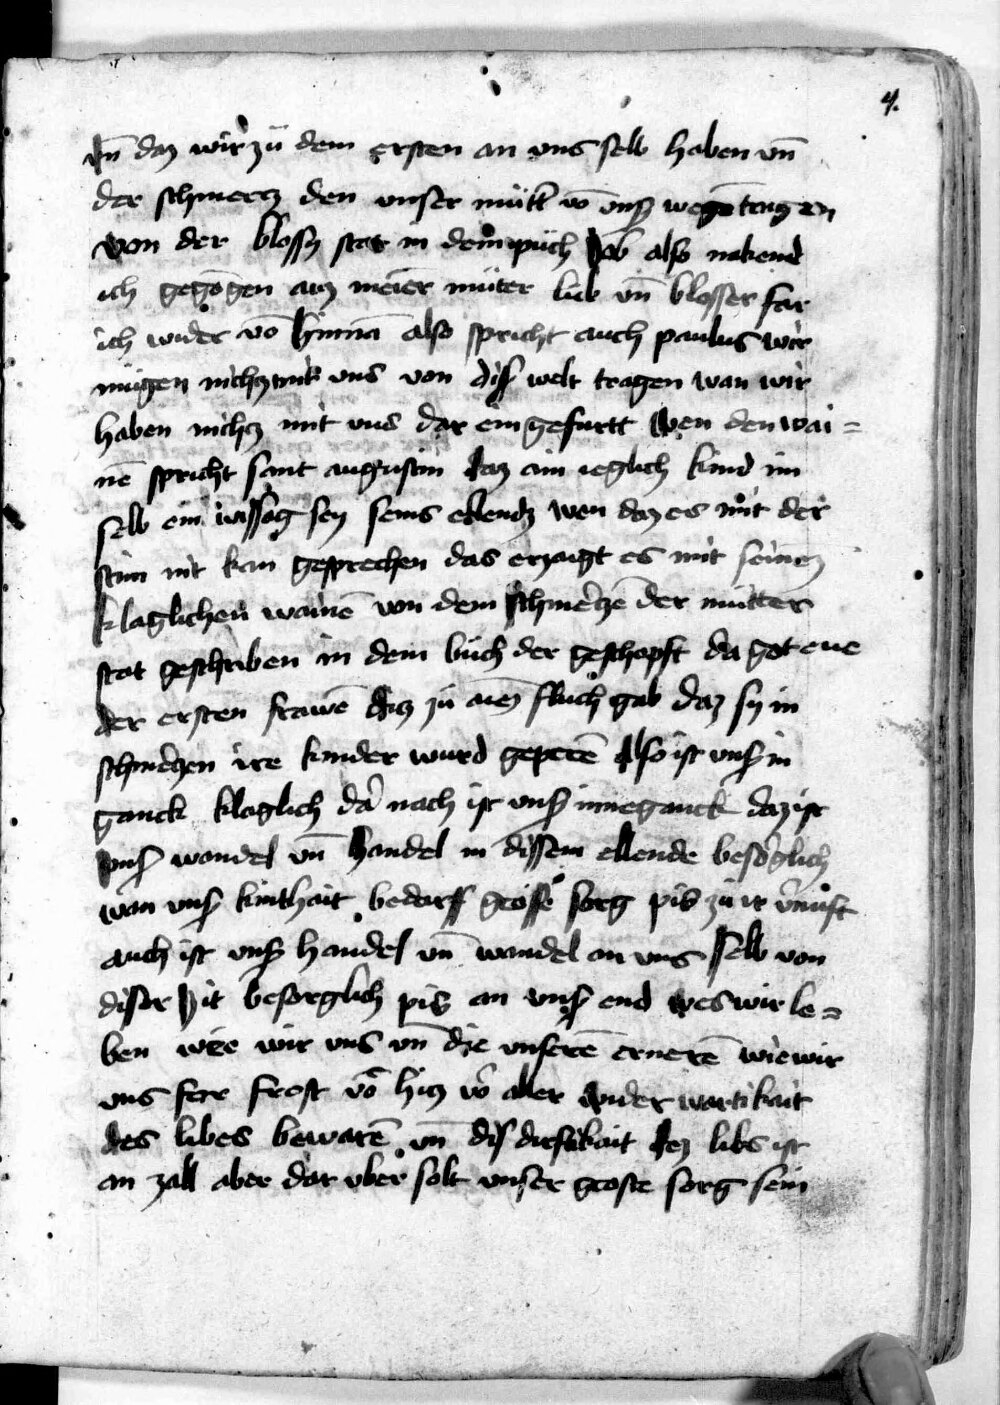 4.
vn̄ daz wir zü dem ersten an vns selb haben vn̄
der schmercz den vnser mütt̄ vō vnß
von der blossz stat in dem püch Job also nakend
ich gegōgen auz meier müter lieb vn̄ blosser far
ich wider vō hinnā also spricht auch paulus wir
mügen nichcz mit vns von diß welt tragen wan wir
haben nichcz mit vns dar ein gefurtt von den wai=
nē spricht sant augustin daz ain ieglich kind im
selb ein wissog sey seins ellendz wen daz es mit der
stim nit kan gesprechen das erzaigt es mit seinez
klaglichen wainē von dem schmerczē der mütter
stat geschriben in dem büch der geschopft da got eue
der ersten frawē diz zü ainez fluch gab daz sy in
schmerczen ire kinder wurd geperē Also ist vnß in
ganck klaglich dar nach ist vnß inneganck daz ist
vnß wandel vn̄ handel in dissem ellende besorglich
wan vnß kinthait bedarff grosse sorg piß zü ir v̄nuft
auch ist vnß handel vn̄ wandel an vns selb von
diser zit besorglich piß an vnß end wes wir le=
ben wie wir vns vn̄ die vnserē ernerē wie wir
vns fer frost vō hicz vō aller wider wartikait
des libes bewarē vn̄ diß dürftikait dez libs ist
an zall aber dar vber solt vnser groste sorg sein